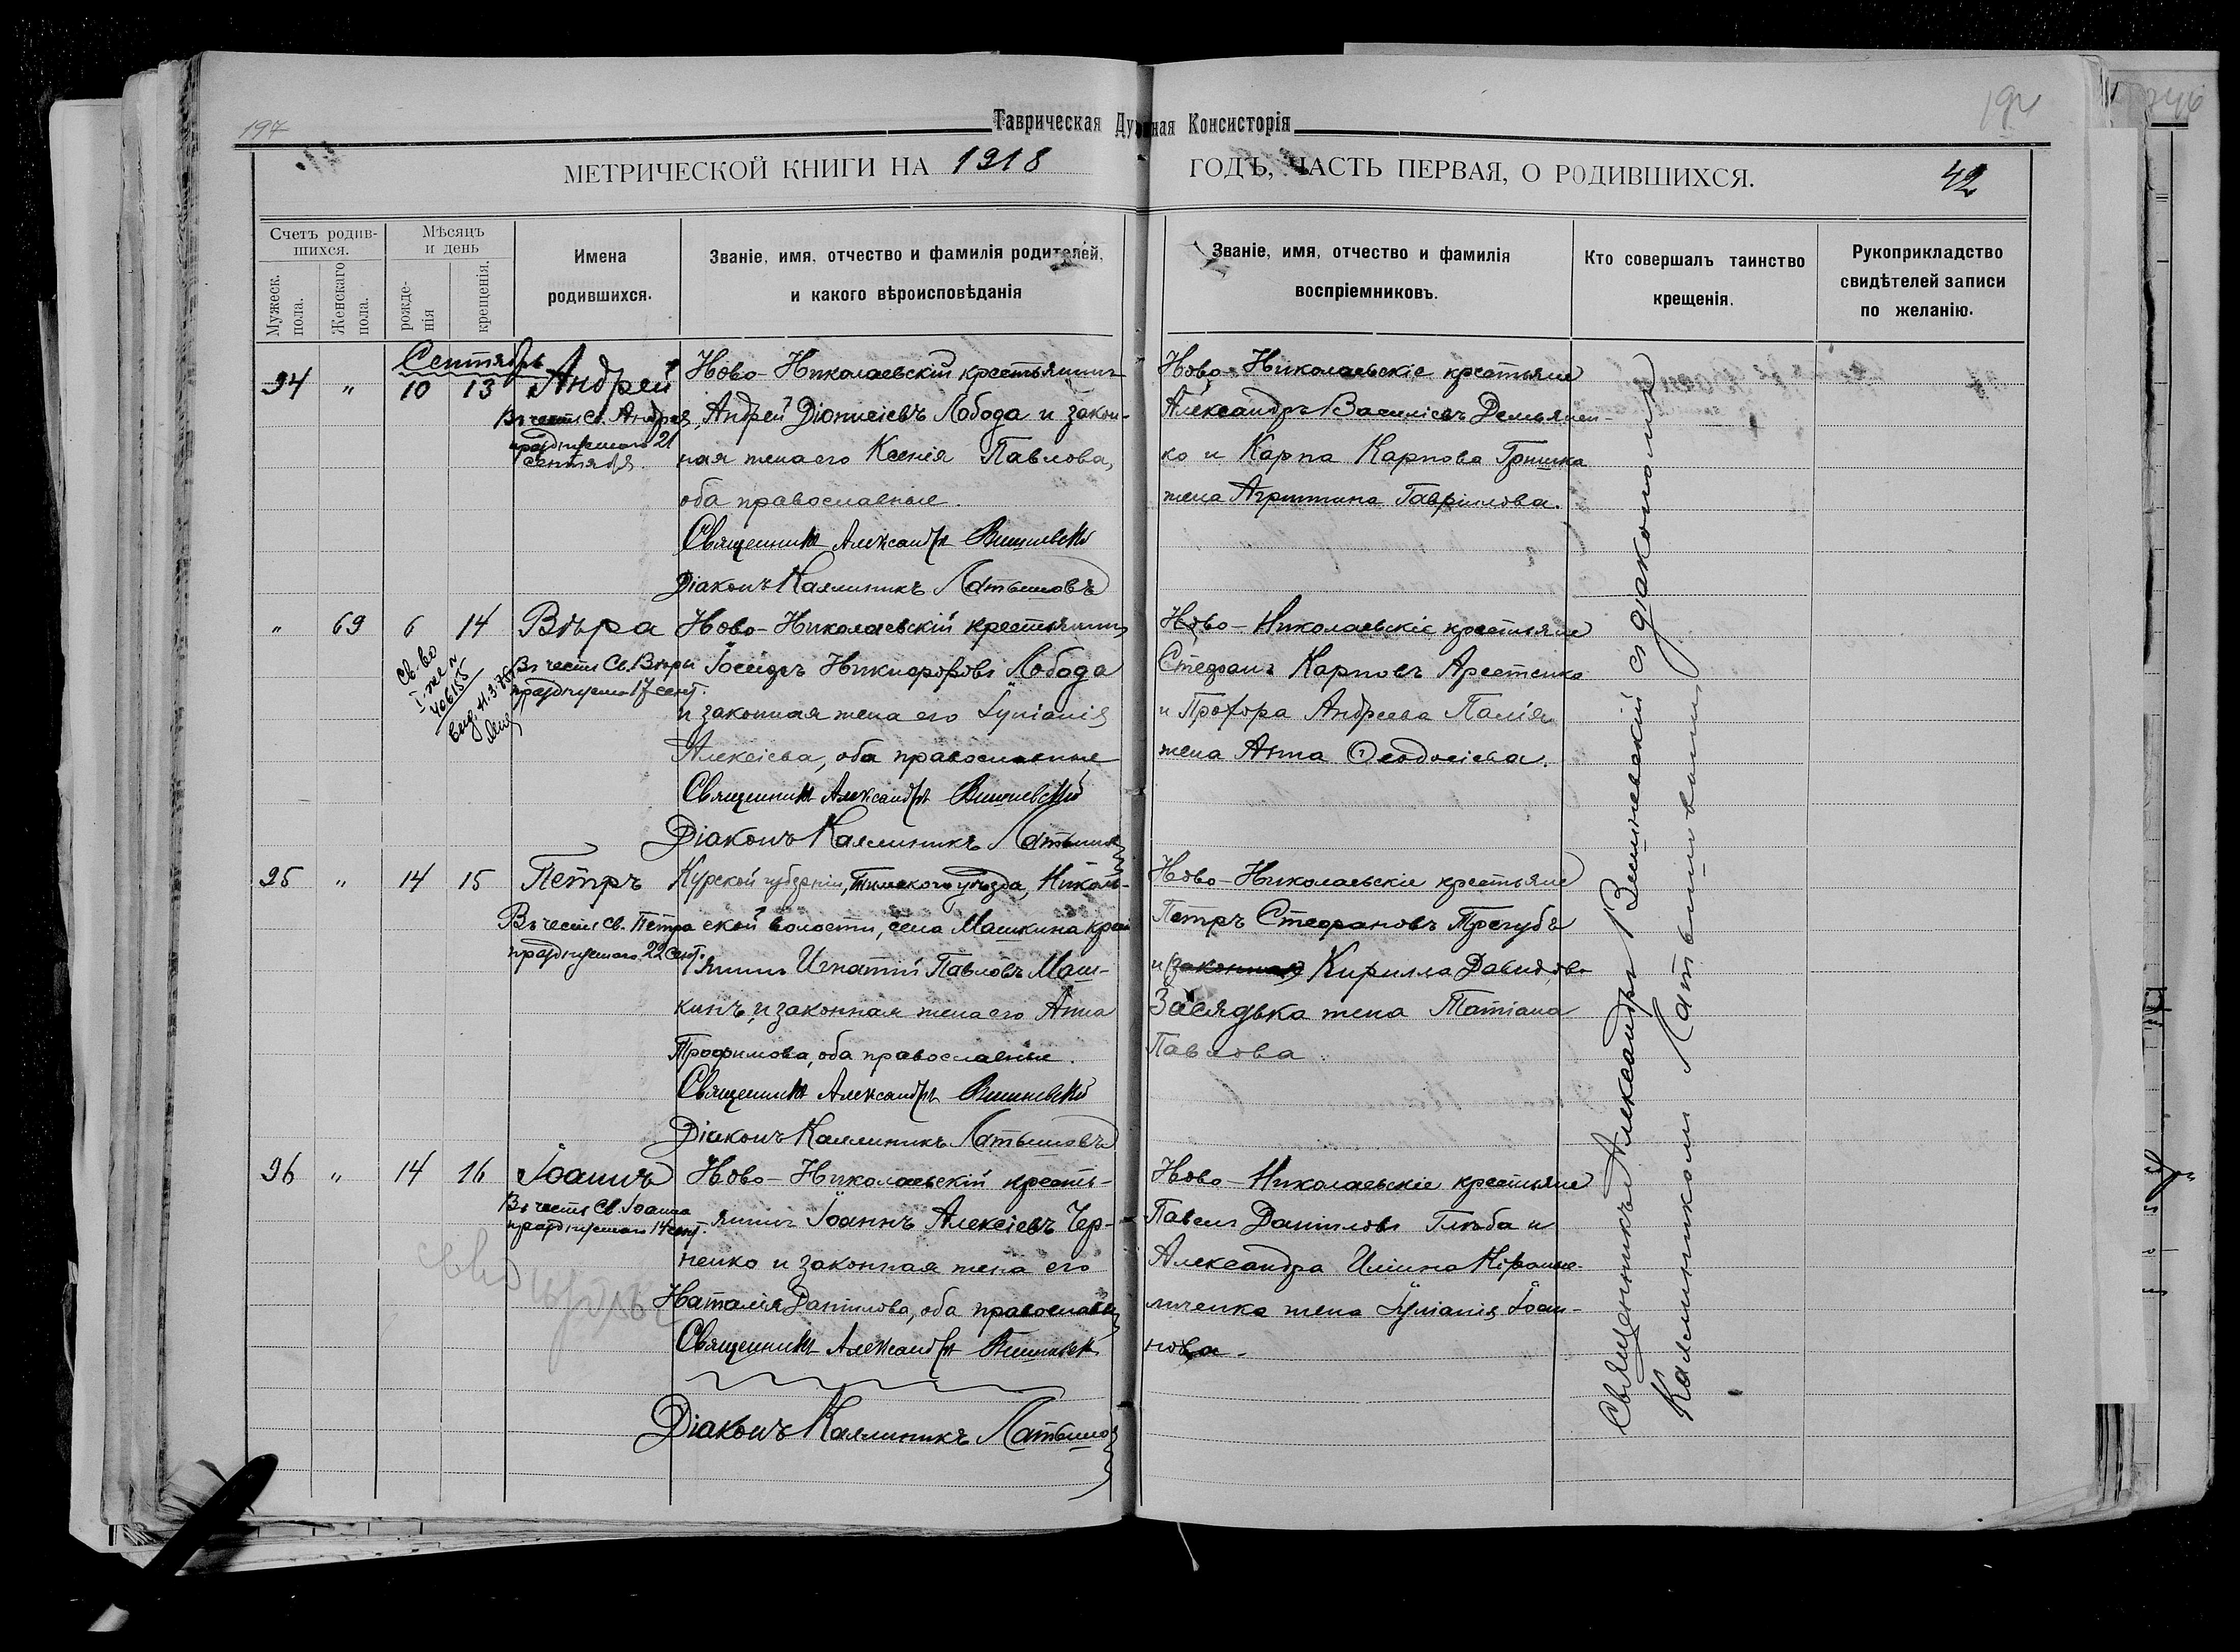 197
Таврическая Духовная Консисторія
192
МЕТРИЧЕСКОЙ КНИГИ НА 1918 ГОДЪ, ЧАСТЬ ПЕРВАЯ, О РОДИВШИХСЯ.
42
Счетъ родив-
шихся.
Мужеск. пола.
Женскаго пола.
Мѣсяцъ
и день
рожде-
нія
крещенія.
Имена
родившихся.
Званіе, имя, отчество и фамилія родителей,
и какого вѣроисповѣданія
Званіе, имя, отчество и фамилія
воспріемниковъ.
Кто совершалъ таинство
крещенія.
Рукоприкладство
свидѣтелей записи
по желанію.
Сентябрь
94 " 10 13 Андрей
Въ честь Св. Андрея
празднуемаго 21
сентября.
Ново-Николаевскій крестьянинъ
Андрей Діонисіевъ Лобода и закон-
ная жена его Ксенія Павлова,
оба православные.
Священникъ Александръ Вишневскій
Діаконъ Каллиникъ Латышовъ
Ново-Николаевскіе крестьяне
Александръ Василіевъ Демьянен-
ко и Карпа Карпова Гришка
жена Агриппина Гавріилова.
" 69 6 14 Вѣра
Въ честь Св. Вѣры
празднуемо 17 сент.
Св-во
406155
Ново-Николаевскій крестьянинъ
Іосифъ Никифоровъ Лобода
и законная жена его Іуліанія
Алексіева, оба православные
Священникъ Александръ Вишневскій
Діаконъ Каллиникъ Латышовъ
Ново-Николаевскіе крестьяне
Стефанъ Карповъ Арестенко
и Прохора Андреева Палія
жена Анна Ѳеодосіева.
95 " 14 15 Петръ
Въ честь Св. Петра
празднуемаго 22 сент.
Курской губерніи, Тимскаго уѣзда, Николь-
ской волости, села Машкина крес
янинъ Игнатій Павловъ Маш-
кинъ и законная жена его Анна
Трофимова, оба православные.
Священникъ Александръ Вишневскій
Діаконъ Каллиникъ Латышовъ
Ново-Николаевскіе крестьяне
Петръ Стефановъ Трегубъ
и (законная) Кирилла Давидова
Засядька жена Татіана
Павлова.
96 " 14 16 Іоаннъ
Въ честь Св. Іоанна
празднуемаго 14 сент.
Ново-Николаевскій кресть-
янинъ Іоаннъ Алексіевъ Чер-
ненко и законная жена его
Наталія Даніилова, оба православн
Священникъ Александръ Вишневск
Діаконъ Каллиникъ Латышов
Ново-Николаевскіе крестьяне
Павелъ Даніиловъ Глѣба и
Александра Иліина
жена Іуліанія Іоан-
нова.
Священникъ Александръ Вишневскій съ діакономъ
Каллиникомъ Латышовымъ